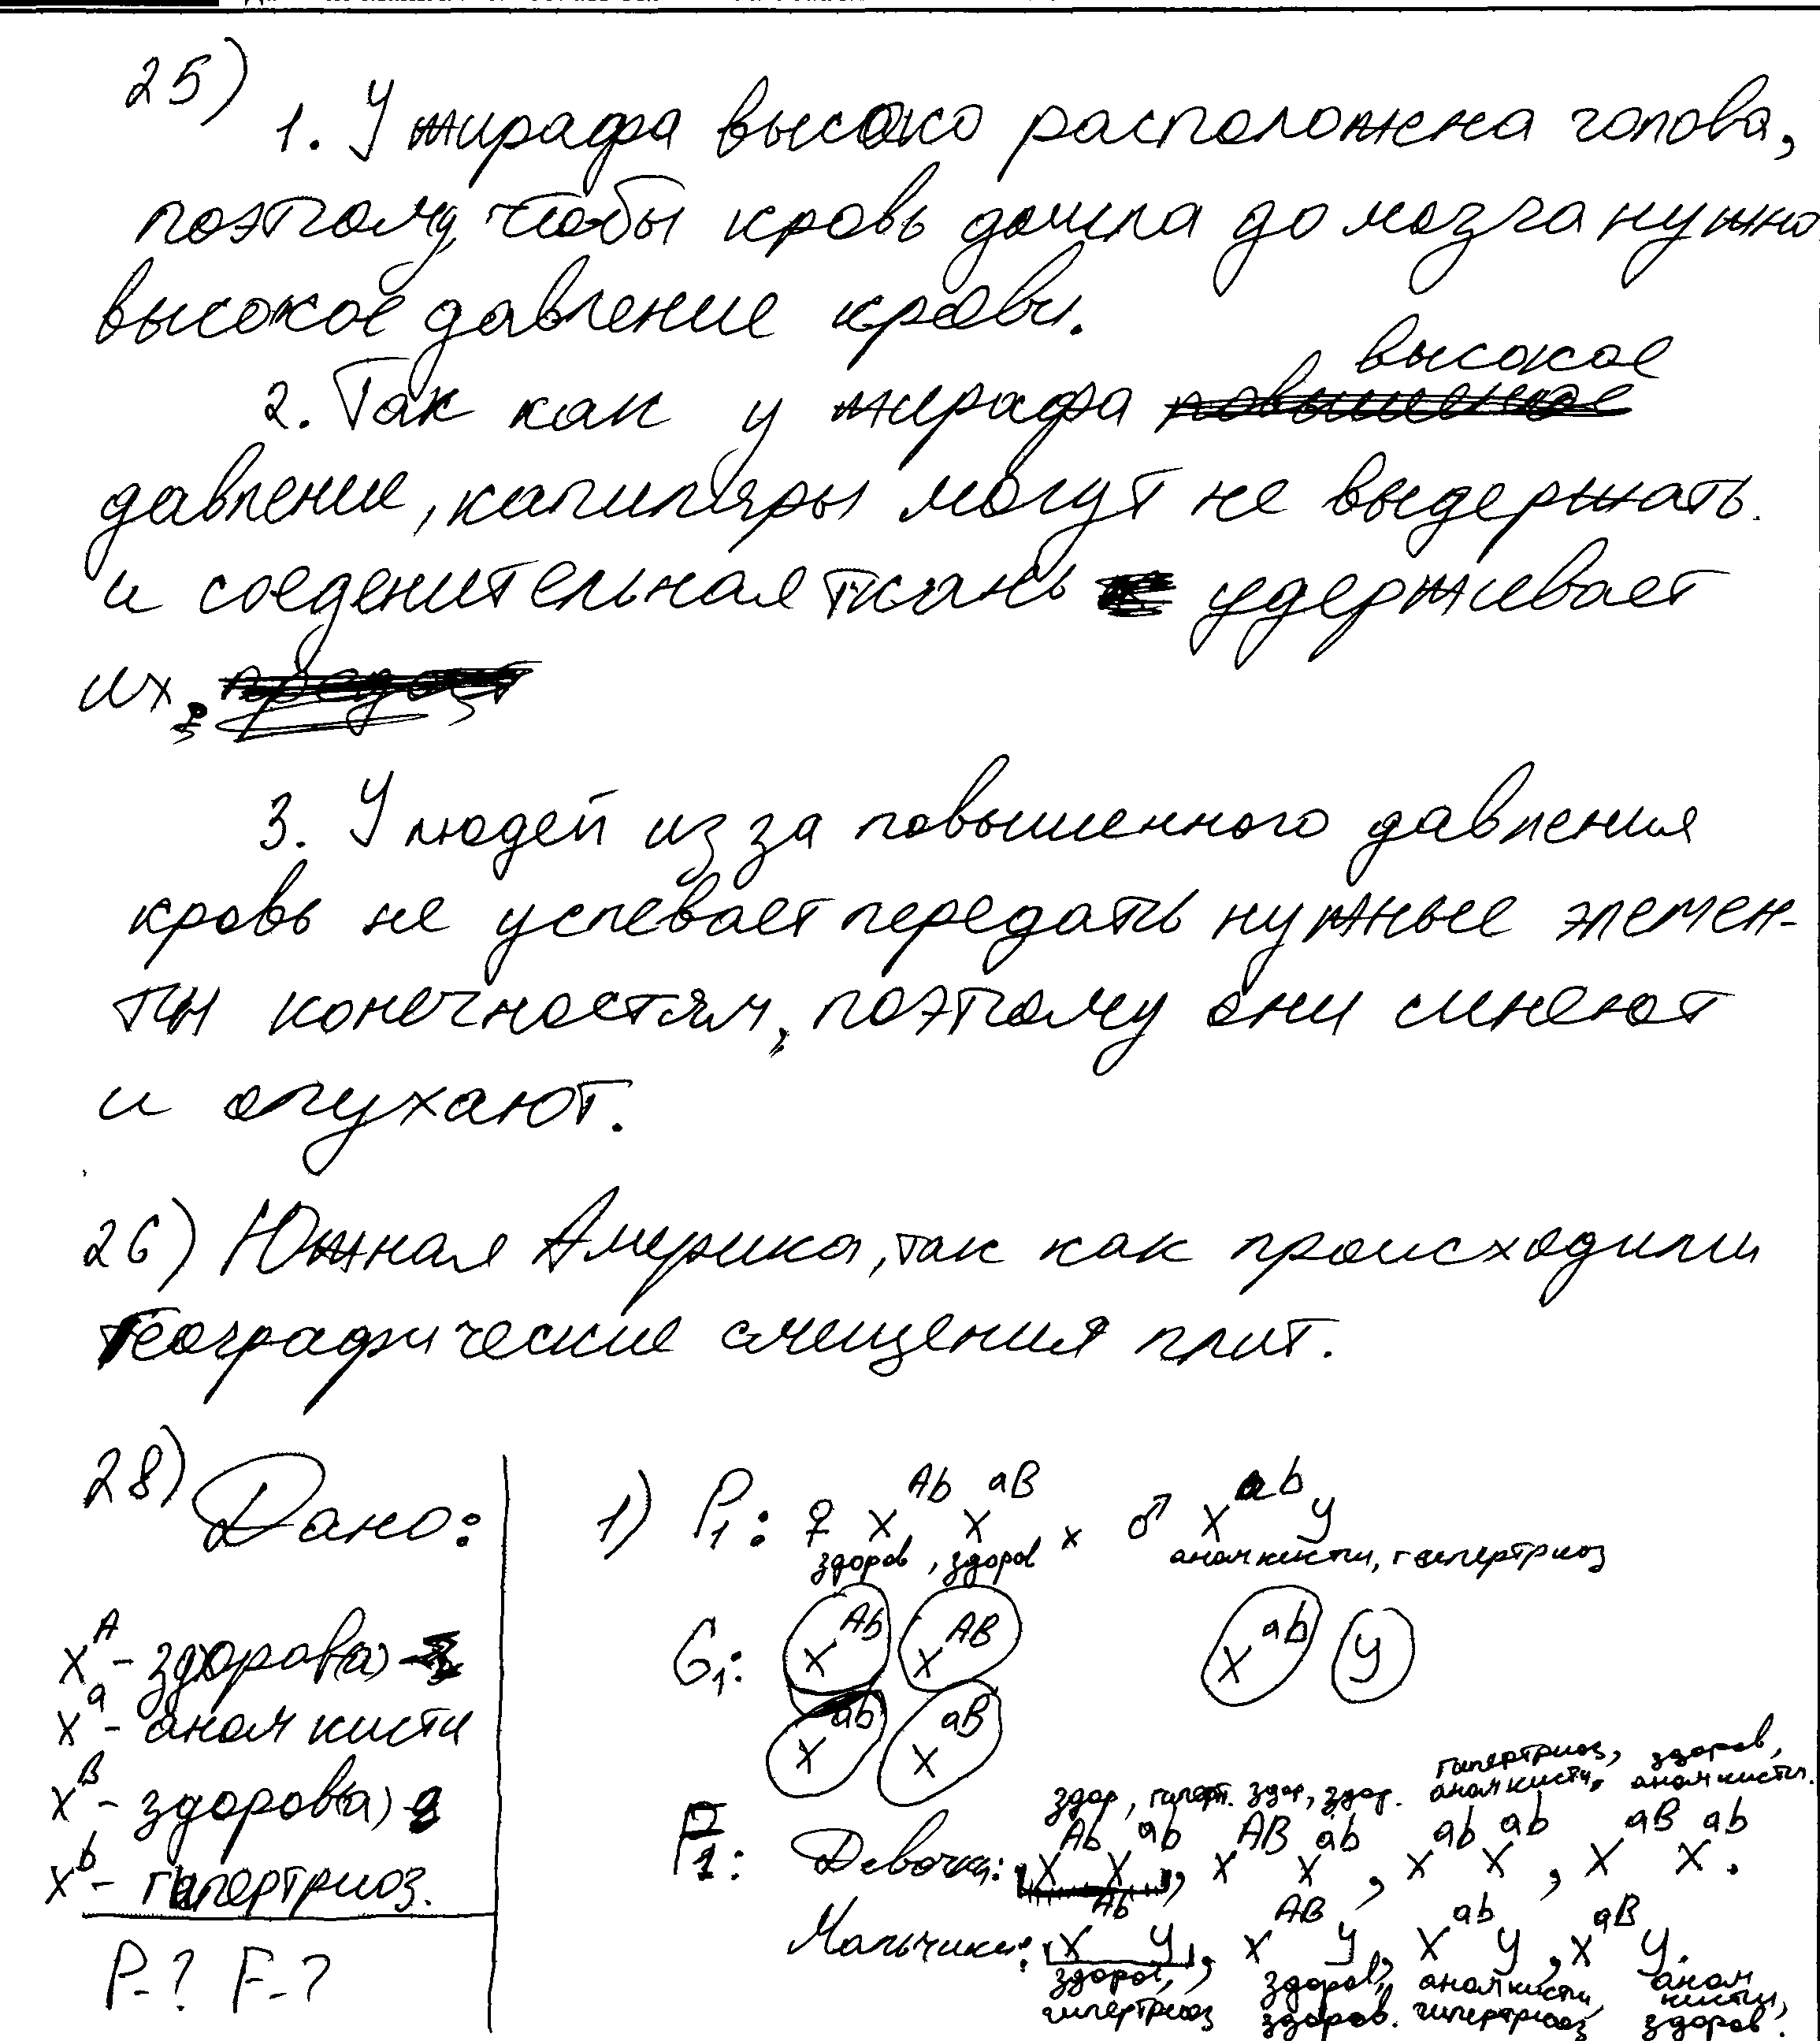 25)
1. У жирафа высоко расположна голова,
поэтому, чтобы кровь дошла до мозга нужно
высокое давление крови.
высокое
2. Так как у жирафа повышенное
давление, капиляры могут не выдержать.
и соеденительная ткань удерживает
их.
3. У людей из за повышенного давления
кровь не успевает передать нужные элемен-
ты конечностям, поэтому они синеют
и опухают.
26) Южная Америка, так как происходили
географические смещения плит.
28) Дано:
X^A - здоров(а)
X^a - аном кисти
X^B - здоров(а)
X^b - гипертриоз.
P-? F-?
1) P₁: ♀ X^Ab X^aB x ♂ X^ab y
здоров, здоров аном кисти, гипертриоз
G₁: X^Ab X^AB X^ab y
X^ab X^aB
здор, гиперт. здор, здор. гипертриоз, аном кисти, здоров, аном кисти.
F₁: Девочки: X^Ab X^ab, X^AB X^ab, X^ab X^ab, X^aB X^ab.
Мальчики: X^Ab y, X^AB y, X^ab y, X^aB y.
здоров, гипертриоз здоров, здоров. аном кисти, гипертриоз аном кисти, здоров.